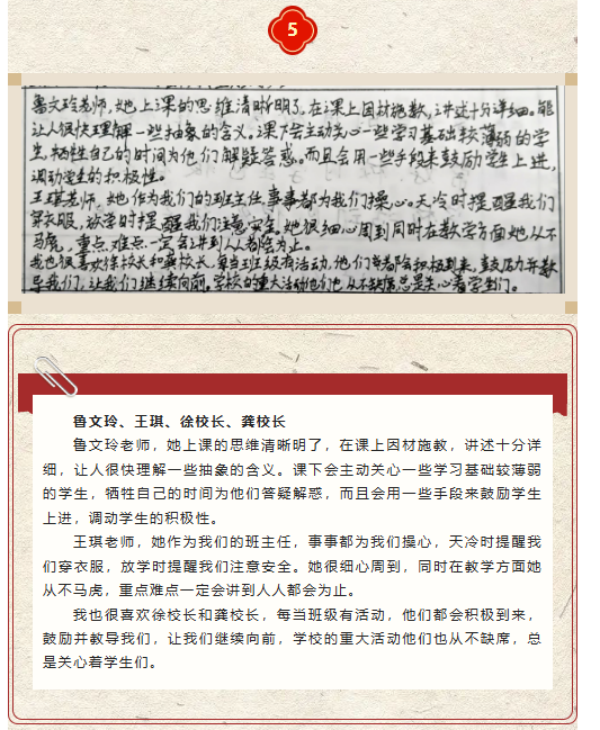 5
鲁文玲老师，她上课的思维清晰明了，在课上因材施教，讲述十分详细。能
让人很快理解一些抽象的含义。课下会主动关心一些学习基础较薄弱的学
生，牺牲自己的时间为他们解疑答惑。而且会用一些手段来鼓励学生上进，
调动学生的积极性。
王琪老师，她作为我们的班主任，事事都为我们操心。天冷时提醒我们
穿衣服，放学时提醒我们注意安全。她很细心周到同时在教学方面她从不
马虎，重点难点一定会讲到人人都会为止。
我也很喜欢徐校长和龚校长，每当班级有活动，他们都会积极到来，鼓励并教
导我们，让我们继续向前。学校的重大活动他们也从不缺席总是关心着学生们。
鲁文玲、王琪、徐校长、龚校长
鲁文玲老师，她上课的思维清晰明了，在课上因材施教，讲述十分详
细，让人很快理解一些抽象的含义。课下会主动关心一些学习基础较薄弱
的学生，牺牲自己的时间为他们答疑解惑，而且会用一些手段来鼓励学生
上进，调动学生的积极性。
王琪老师，她作为我们的班主任，事事都为我们操心，天冷时提醒我
们穿衣服，放学时提醒我们注意安全。她很细心周到，同时在教学方面她
从不马虎，重点难点一定会讲到人人都会为止。
我也很喜欢徐校长和龚校长，每当班级有活动，他们都会积极到来，
鼓励并教导我们，让我们继续向前，学校的重大活动他们也从不缺席，总
是关心着学生们。